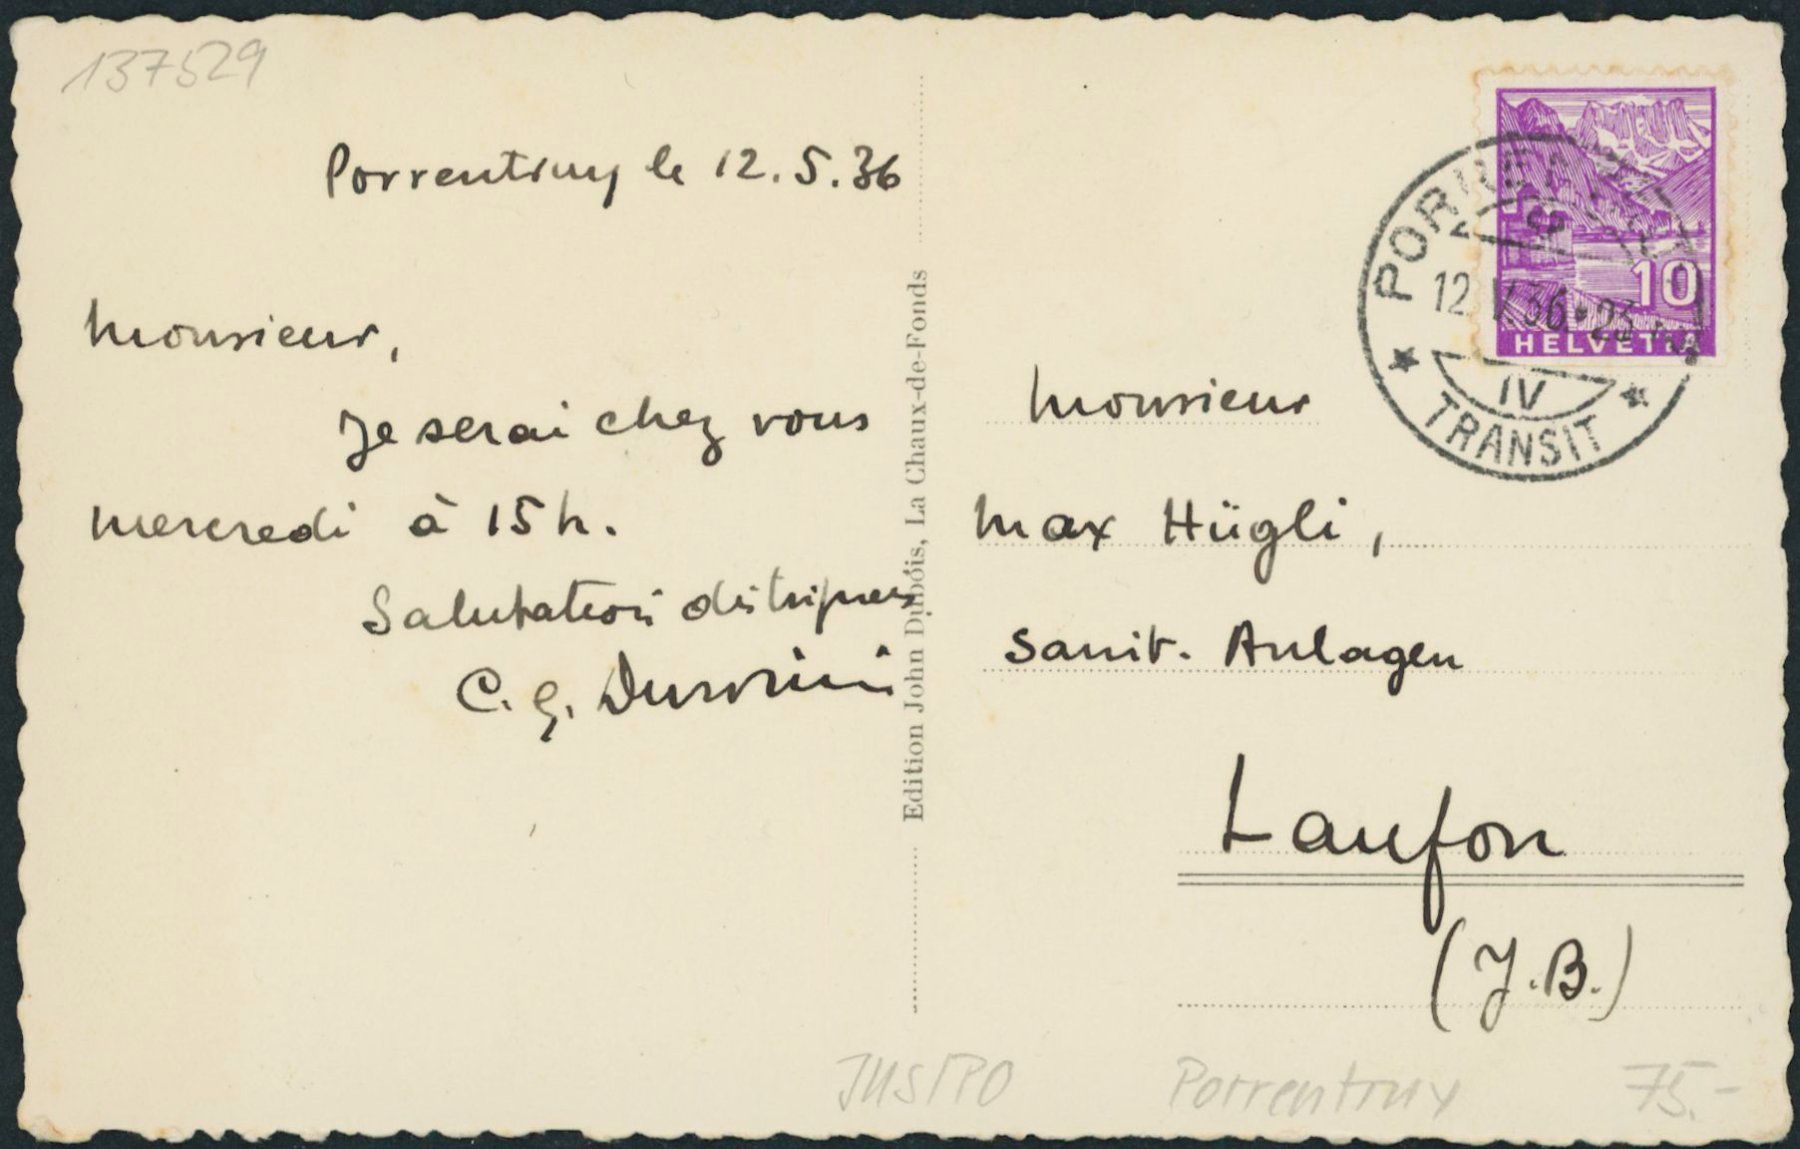 137529
Porrentruy le 12.5.36
Monsieur,
Je serai chez vous
mercredi à 15 h.
Salutations distinguées
C. G.
Edition John Dubois, La Chaux-de-Fonds
HELVETIA
10
12.V.36.-23
IV
TRANSIT
Monsieur
Max Hügli,
Sanit. Anlagen
Laufon
(J.B.)
Porrentruy
75.-